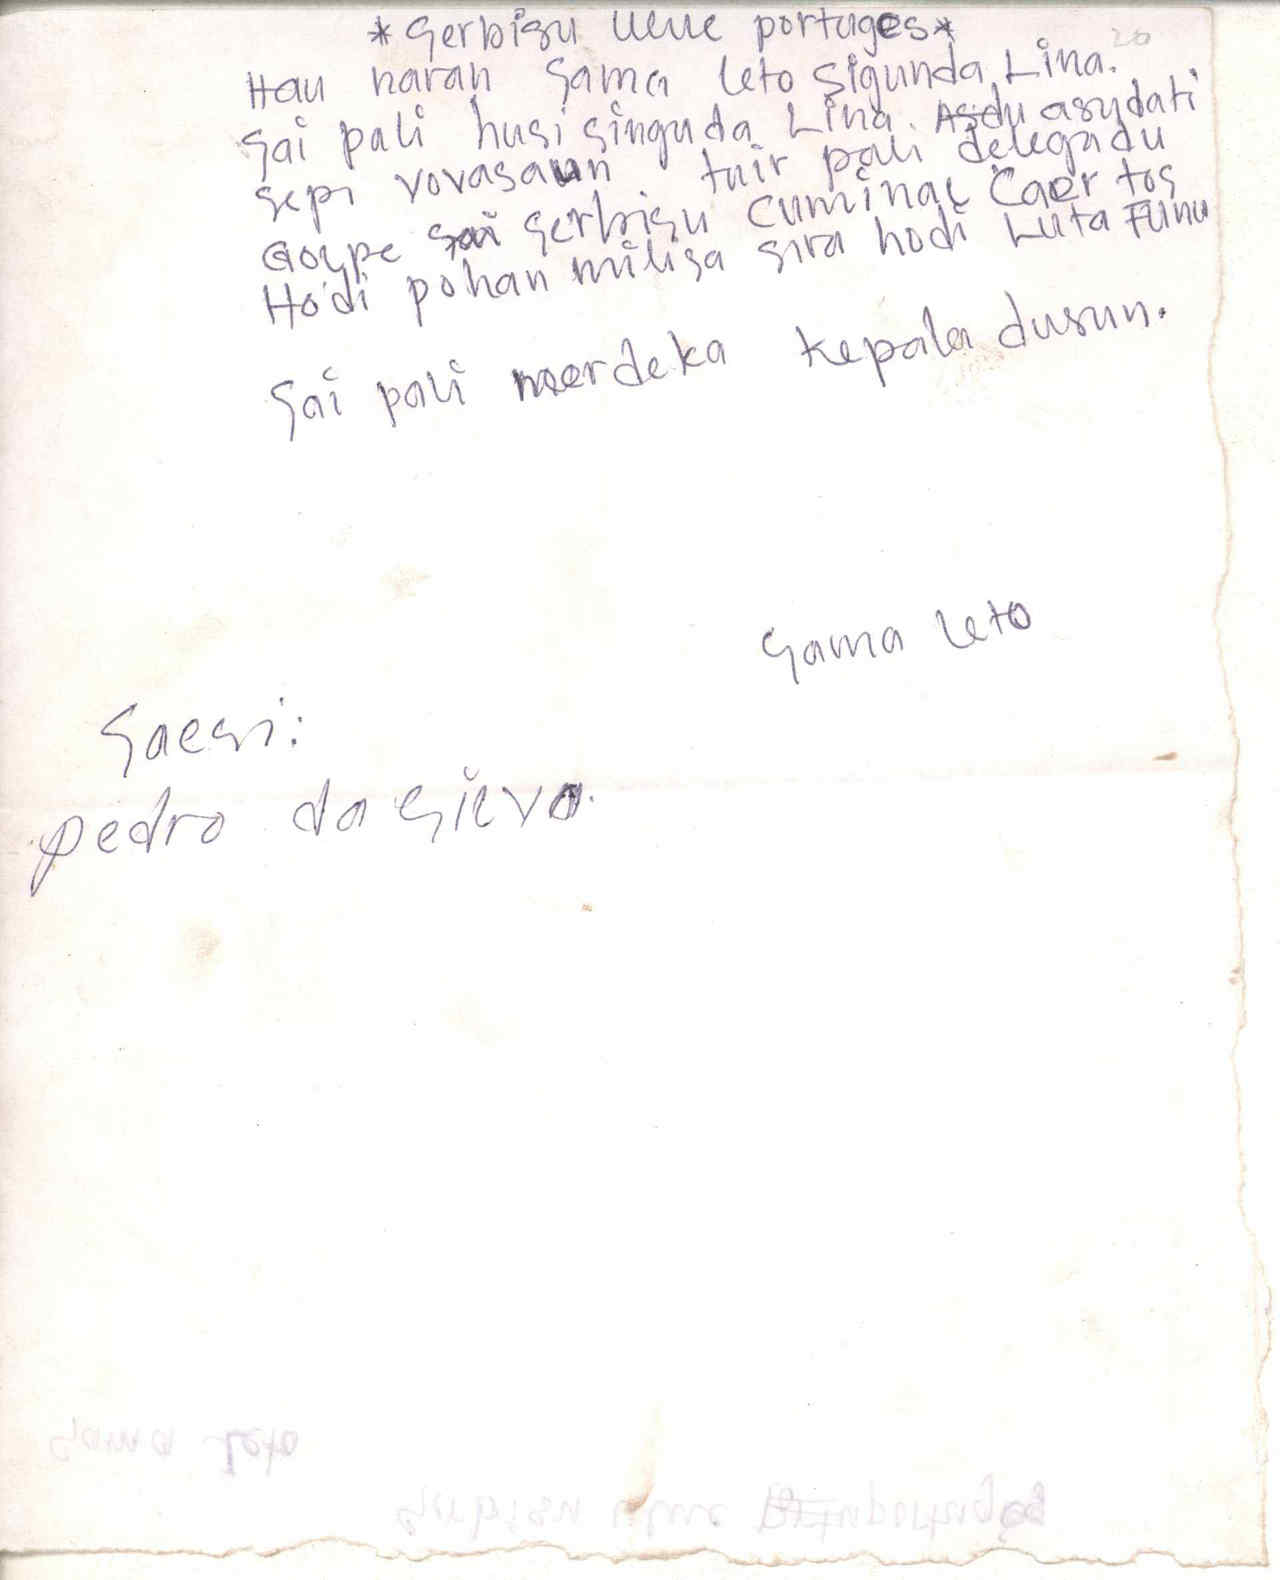 *Serbisu Ueue portuges*
20
Hau naran Sama leto Sigunda Lina.
Sai pali husi singuda Lina. Asdu asudati
sepi vovasaun tuir pali delegadu
Golpe sai serbisu Cuminal Caer tos
Hodi pohan milisa sira hodi Luta Funu
Sai pali merdeka kepala dusun.
Sama leto
Saesi:
pedro da Silva.